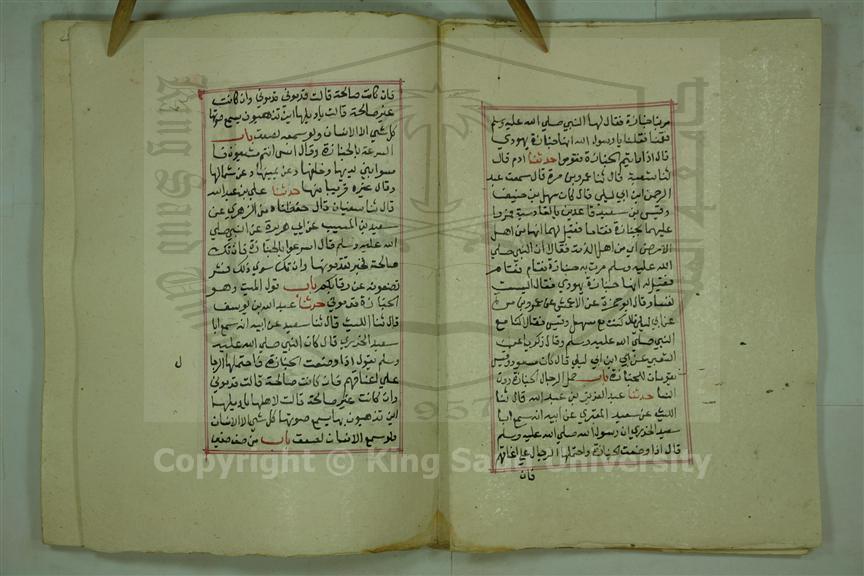 مر بنا جنازة فقام لها النبي صلى الله عليه وسلم
وقمنا فقلنا يا رسول الله انها جنازة يهودي
قال اذا رايتم الجنازة فقوموا حدثنا ادم قال
ثنا شعبة قال ثنا عمرو بن مرة قال سمعت عبد
الرحمن ابن ابي ليلى قال كان سهل بن حنيف
وقيس بن سعد قاعدين بالقادسية فمروا
عليهما بجنازة فقاما فقيل لهما انها من اهل
الارض اي من اهل الذمة فقالا ان النبي صلى
الله عليه وسلم مرت به جنازة فقام فقام
فقيل له انها جنازة يهودي فقال اليست
نفسا وقال ابو حمزة عن الاعمش عن عمرو بن مرة
عن ابي ليلى قال كنت مع سهل وقيس فقالا كنا مع
النبي صلى الله عليه وسلم وقال زكريا عن
الشعبي عن ابي ابن ابي ليلى قال كان مسعود وقيس
يقومان للجنازة باب حمل الرجال الجنازة دون
النسا حدثنا عبد العزيز بن عبد الله قال ثنا
الليث عن سعيد المقبري عن ابيه انه سمع ابا
سعيد الخدري ان رسول الله صلى الله عليه وسلم
قال اذا وضعت الجنازة واحتملها الرجال على اعناقهم
فان
فان كانت صالحة قالت قدموني قدموني وان كانت
غير صالحة قالت يا ويلها اين تذهبون يسمع صوتها
كل شي الا الانسان ولو سمعه لصعق باب
السرعة بالجنازة وقال انس انتم مشيعون فا
مشوا بين يديها وخلفها وعن يمينها وعن شمالها
وقال غيره قريبا منها حدثنا علي بن عبد الله
قال ثنا سفيان قال حفظناه من الزهري عن
سعيد بن المسيب عن ابي هريرة عن النبي صلى
الله عليه وسلم قال اسرعوا بالجنازة فان تك
صالحة فخير تقدمونها وان تك سوى ذلك فشر
تضعونه عن رقابكم باب قول الميت وهو
الجنازة قدموني حدثنا عبد الله بن يوسف
قال ثنا الليث قال ثنا سعيد عن ابيه انه سمع ابا
سعيد الخدري قال كان النبي صلى الله عليه
وسلم يقول اذا وضعت الجنازة فاحتملها الرجا
ل
على اعناقهم فان كانت صالحة قالت قدموني
وان كانت غير صالحة قالت لاهلها يا ويلها
اين تذهبون بها يسمع صوتها كل شي الا الانسان
ولو سمع الانسان لصعق باب من صف صفين
Copyright © King Saud University
King Saud University
1957